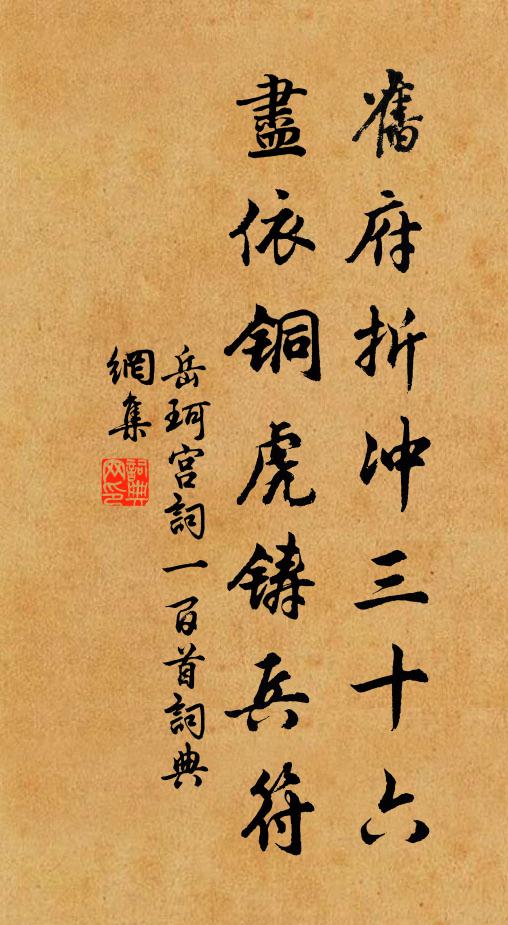 舊府折冲三十六
盡依銅虎鑄兵符
岳珂宮詞一百首詞典
網集
詞典網印